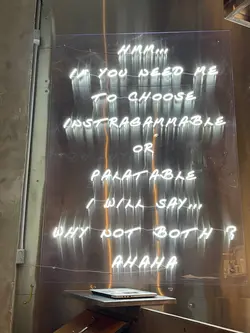 HMM...
IF YOU NEED ME
TO CHOOSE
INSTRAGAMMABLE
OR
PALATABLE
I WILL SAY...
WHY NOT BOTH?
AHAHA